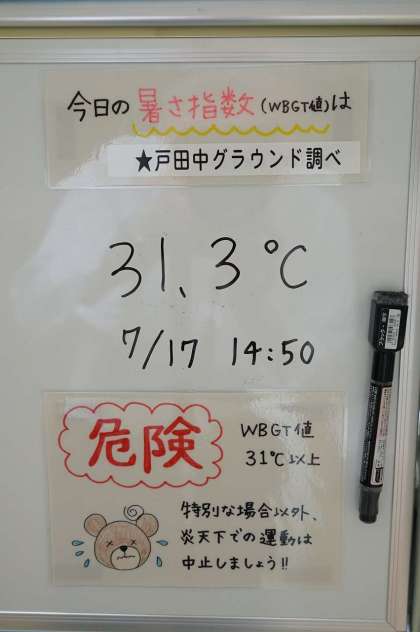 今日の暑さ指数(WBGT値)は
★戸田中グラウンド調べ
31.3℃
7/17 14:50
危険
WBGT値
31℃以上
特別な場合以外、
炎天下での運動は
中止しましょう!!